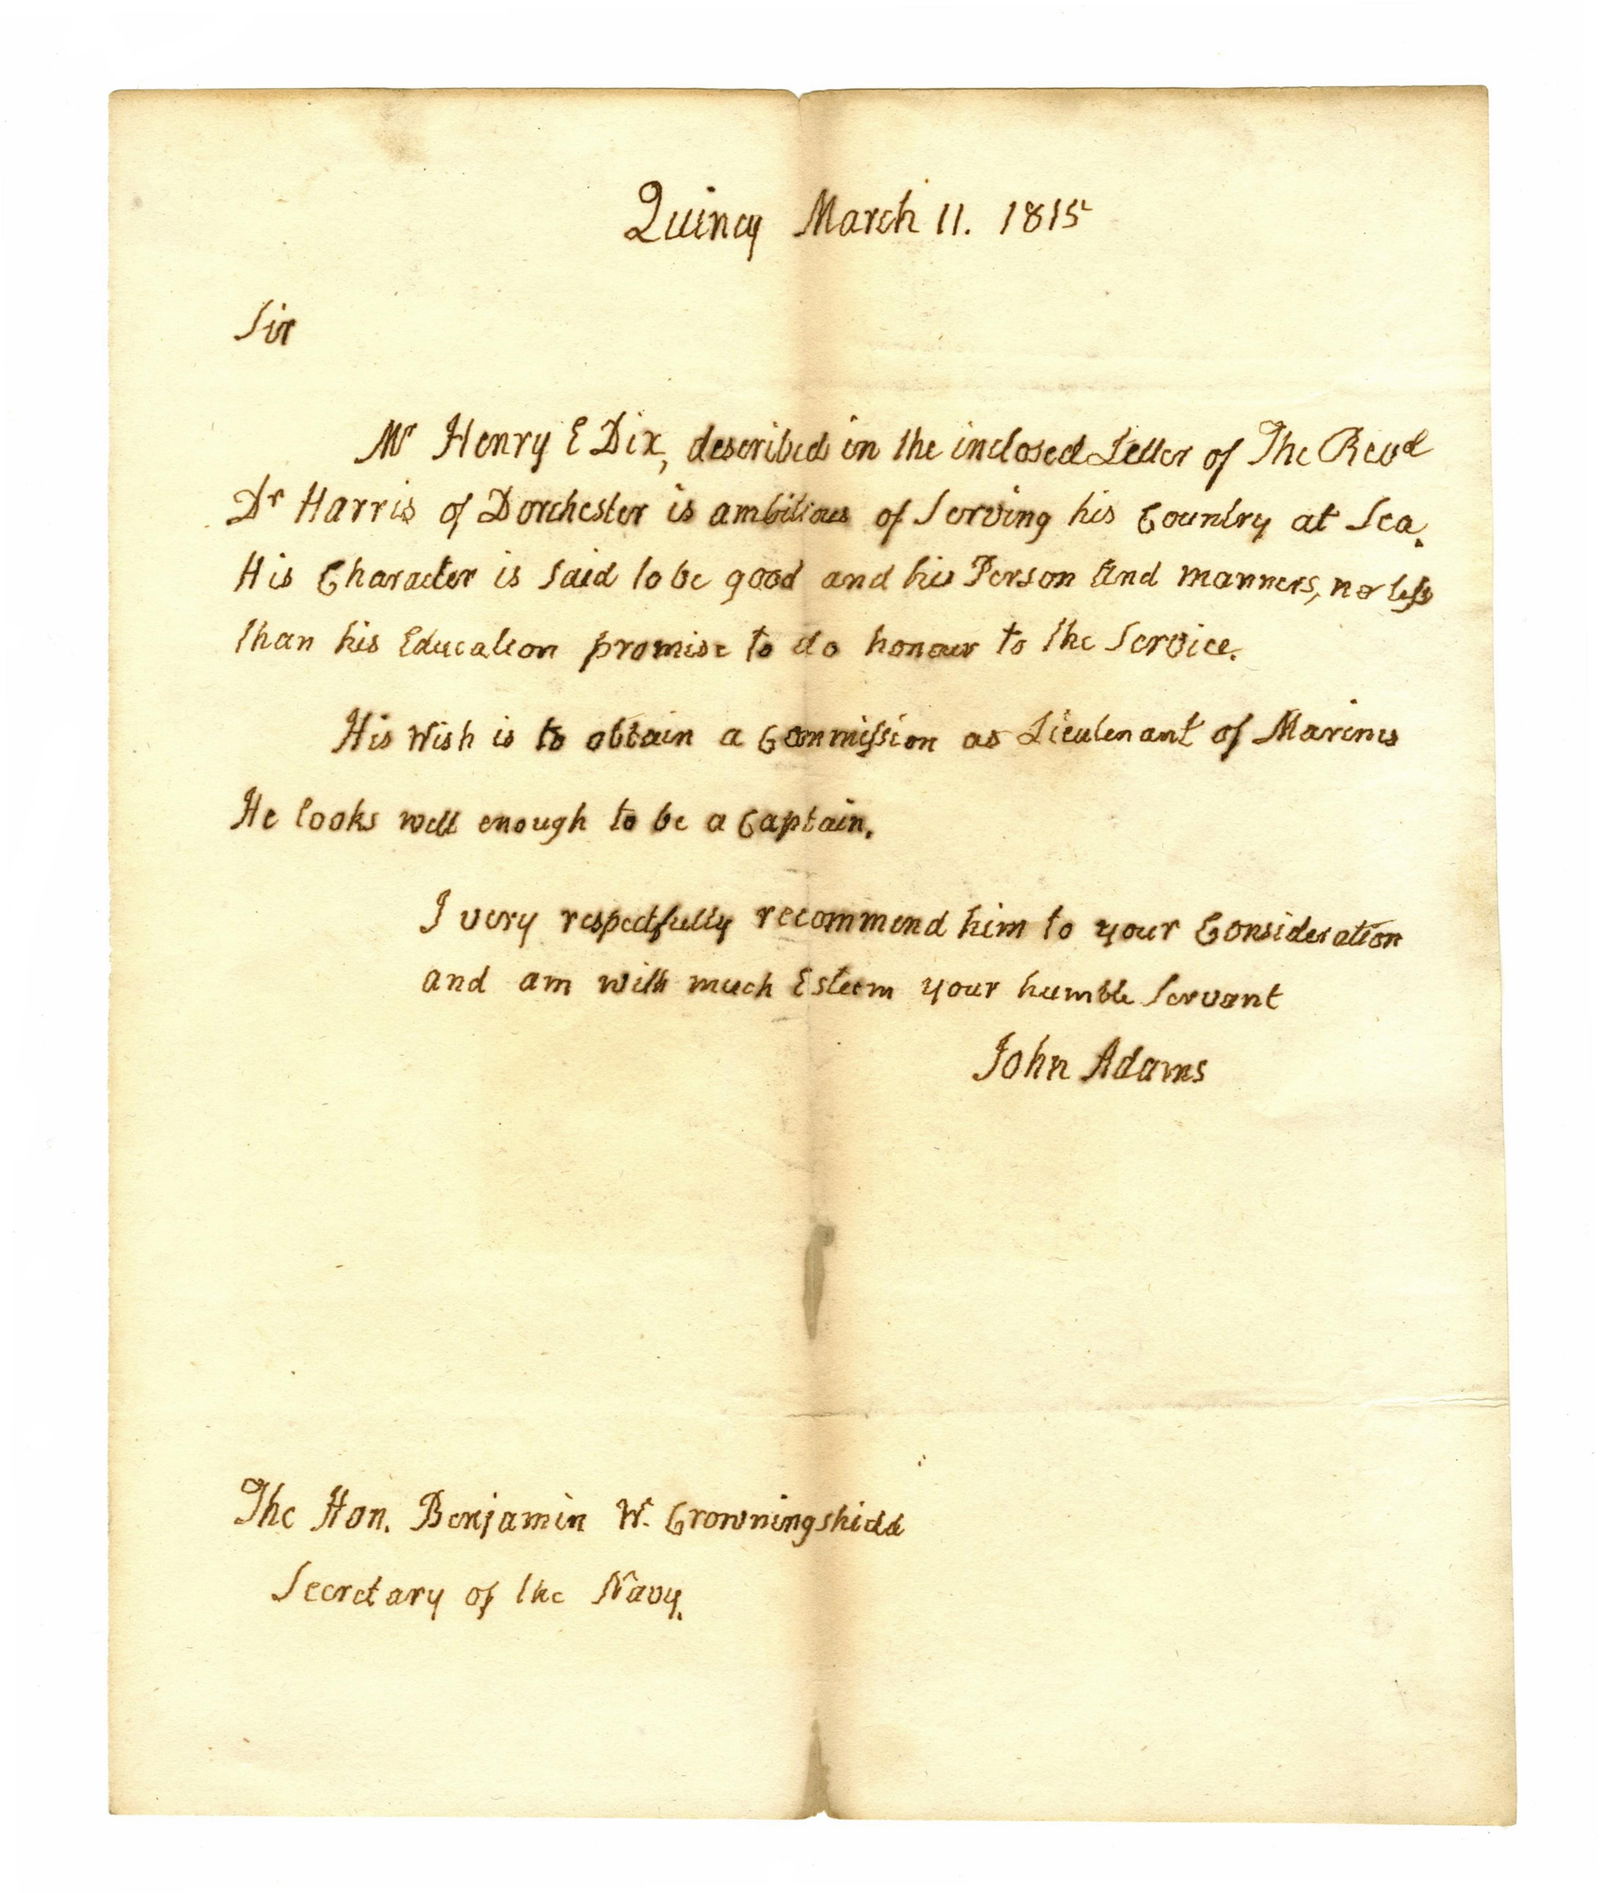 Quincy March 11. 1815
Sir
Mr Henry E Dix, described in the inclosed Letter of The Revd
Dr Harris of Dorchester is ambitious of Serving his Country at Sea.
His Character is Said to be good and his Person and manners, no less
than his Education promise to do honour to the Service.
His Wish is to obtain a Commission as Lieutenant of Marines
He looks well enough to be a Captain.
I very respectfully recommend him to your Consideration
and am with much Esteem your humble Servant
John Adams
The Hon. Benjamin W. Crowningshield
Secretary of the Navy.